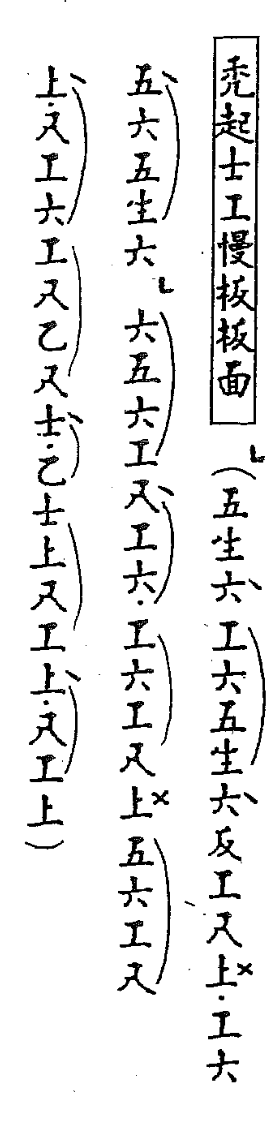 禿起士工慢板板面 ㄴ（五生六、工六五生六、反工尺上×·工六
五、六五生六ㄴ六五六工尺、工六·工六工尺上×五六工尺
上、·尺工六工尺乙尺士、·乙士上尺工上、·尺工上）